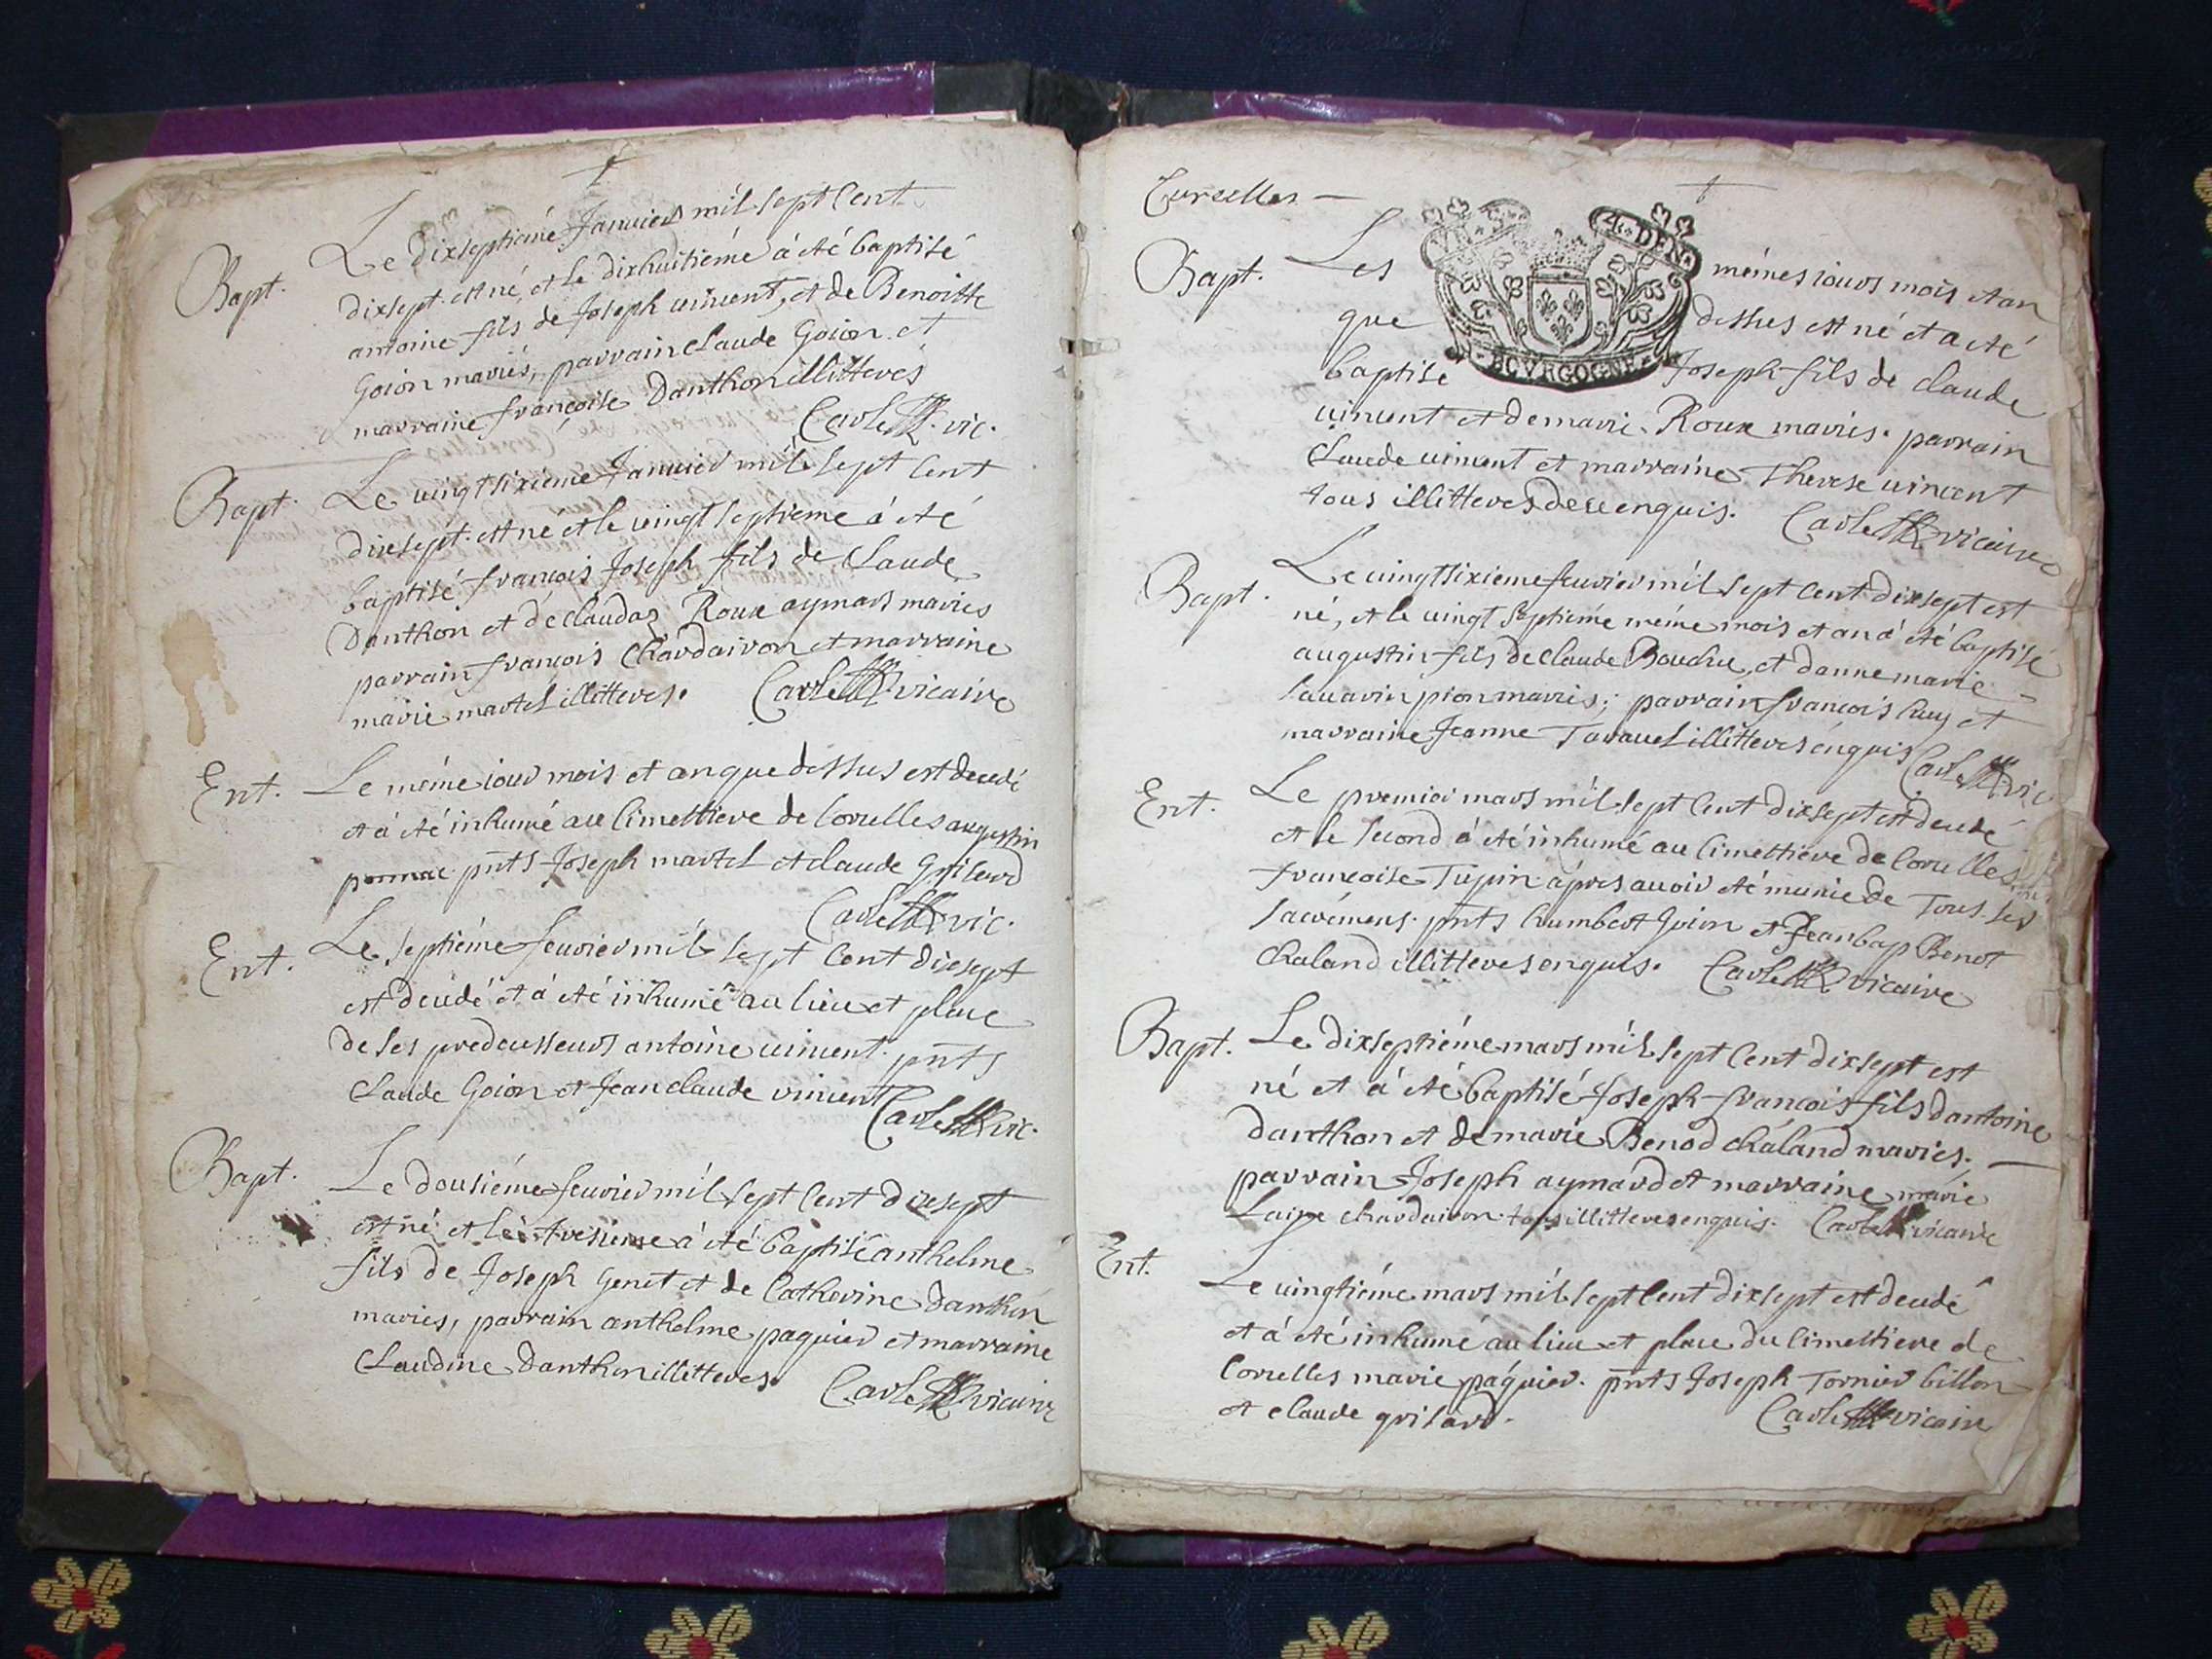 Bapt. Le dixseptiéme Janvier mil sept cent
dixsept est né, et le dixhuitiéme à été baptisé
antoine fils de Joseph vincent, et de Benoitte
Goion mariés, parrain claude Goion et
marraine françoise Danthon illitterés
Carle vic.
Bapt. Le vingt sixieme Janvier mil sept cent
dixsept est né et le vingt septieme à été
baptisé françois Joseph fils de Claude
Danthon et de claudaz Roux aymard mariés
parrain françois Chardairon et marraine
marie martel illitteres. Carle vicaire
Ent. Le méme iour mois et an que dessus est decedé
et à été inhumé au cimettiere de Corcelles augustin
pnts Joseph martel et claude Grilard
Carle vic.
Ent. Le septiéme feuvier mil sept cent dixsept
est decedé et à été inhumé au lieu et place
de ses predecesseurs antoine vincent. pnts
Claude Goion et Jean claude vincent
Carle vic.
Bapt. Le dousiéme feuvier mil sept cent dixsept
est né et le tresieme à été baptisé anthelme
fils de Joseph Genet et de Catherine Danthon
mariés, parrain anthelme paquier et marraine
Claudine Danthon illitteres. Carle vicaire
Curselles
Bapt. Les mémes iours mois et an
que dessus est né et a été
baptisé Joseph fils de claude
vincent et de marie Roux mariés. parrain
Claude vincent et marraine Therese vincent
tous illitteres de ce enquis. Carle vicaire
4. DEN.
BOVRGOGNE
Bapt. Le vingt sixieme feuvier mil sept cent dixsept est
né, et le vingt septiéme méme mois et an à été baptisé
augustin fils de claude Bouchu, et danne marie
savarin pion mariés; parrain françois et
marraine Jeanne Taravel illitteres enquis Carle vic
Ent. Le premier mars mil sept cent dixsept est decedé
et le second à été inhumé au cimettiere de Corcelles
françoise Tupin áprés avoir été munie de Tous les
sacrémens. pnts humbert Goion et Jean bap Benot
chaland illitteres enquis. Carle vicaire
Bapt. Le dixseptiéme mars mil sept cent dixsept est
né et à été baptisé Joseph françois fils dantoine
danthon et de marie Benod chaland mariés.
parrain Joseph aymard et marraine marie
chardairon tous illitteres enquis. Carle vicaire
Ent. Le vingtiéme mars mil sept cent dixsept est decedé
et à été inhumé au lieu et place du cimettiere de
Corcelles marie páquier. pnts Joseph Tornier billon
et claude grilard. Carle vicaire